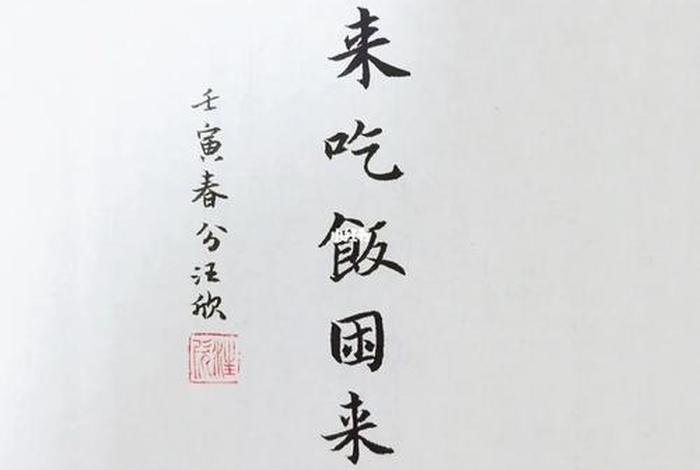 来吃飯困来
壬寅春分汪欣
汪欣